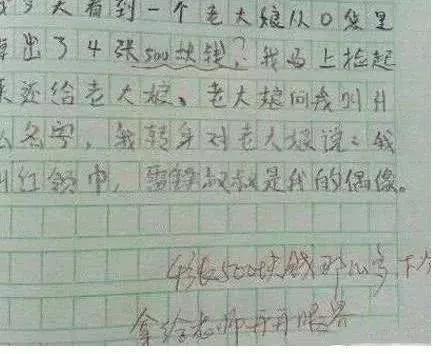 天看到一个老大娘从口袋里
掉出了4张500块钱?我马上捡起
来还给老大娘、老大娘问我叫什
么名字,我转身对老大娘说:我
叫红领巾,雷锋叔叔是我的偶像。
4张500块钱 下次
拿给老师开开眼界